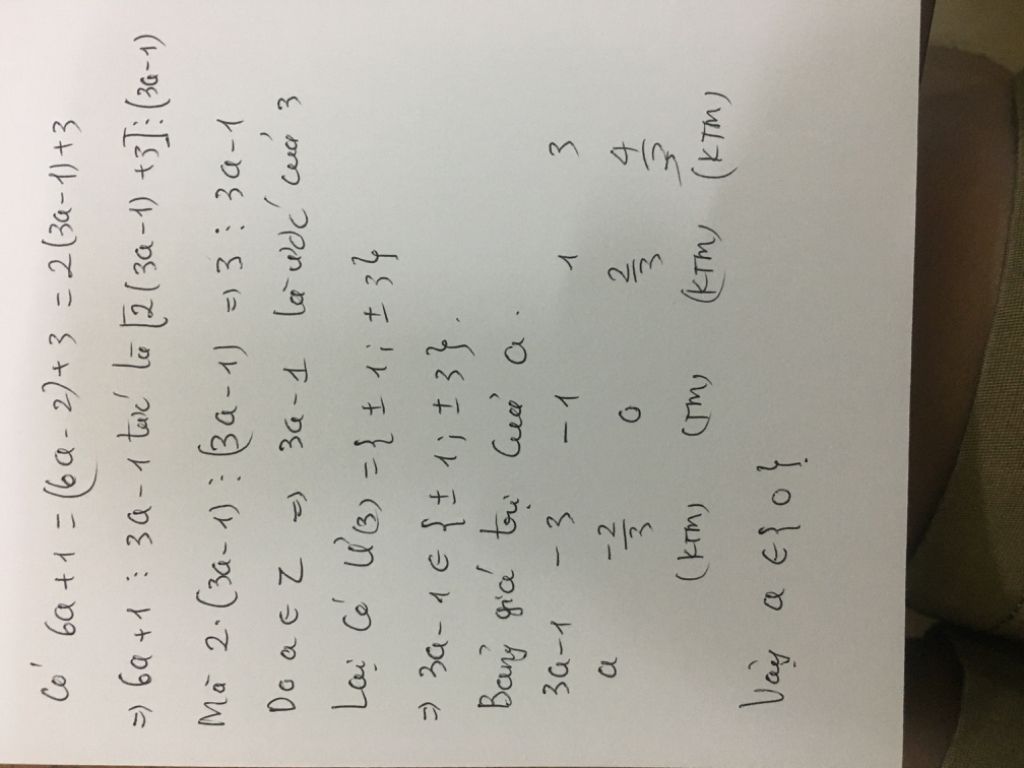 Có 6a+1 = (6a-2)+3 = 2(3a-1)+3
=) 6a+1 ⋮ 3a-1 tức là [2(3a-1)+3] ⋮ (3a-1)
Mà 2.(3a-1) ⋮ (3a-1) =) 3 ⋮ 3a-1
Do a ∈ Z =) 3a-1 là ước của 3
Lại có Ư(3) = {±1; ±3}
=) 3a-1 ∈ {±1; ±3}.
Bảng giá trị của a.
3a-1 -3 -1 1 3
a -2/3 0 2/3 4/3
(KTM) (TM) (KTM) (KTM)
Vậy a ∈ {0}